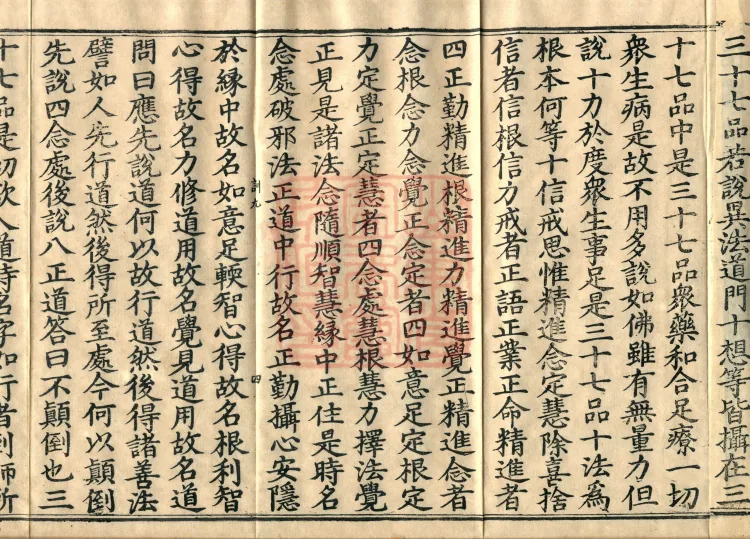 三十七品若說異法道門十想等皆攝在三
十七品中是三十七品衆藥和合足療一切
衆生病是故不用多說如佛雖有無量力但
說十力於度衆生事足是三十七品十法爲
根本何等十信戒思惟精進念定慧除喜捨
信者信根信力戒者正語正業正命精進者
四正勤精進根精進力精進覺正精進念者
念根念力念覺正念定者四如意足定根定
力定覺正定慧者四念處慧根慧力擇法覺
正見是諸法念隨順智慧緣中正住是時名
念處破邪法正道中行故名正勤攝心安隱
訓九
四
於緣中故名如意足軟智心得故名根利智
心得故名力修道用故名覺見道用故名道
問曰應先說道何以故行道然後得諸善法
譬如人先行道然後得所至處今何以顛倒
先說四念處後說八正道答曰不顛倒也三
十七品是初欲入道時名字如行者到師所